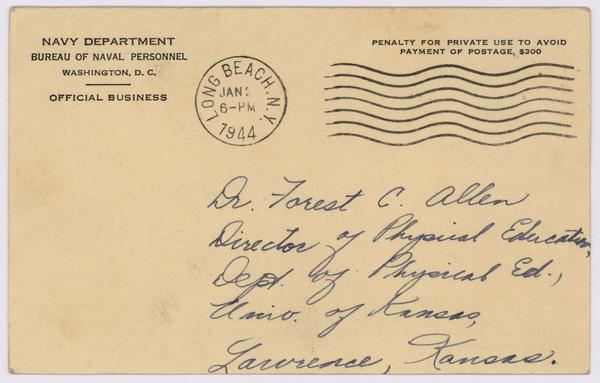 NAVY DEPARTMENT
BUREAU OF NAVAL PERSONNEL
WASHINGTON, D. C.
OFFICIAL BUSINESS
PENALTY FOR PRIVATE USE TO AVOID
PAYMENT OF POSTAGE, $300
LONG BEACH, N.Y.
JAN 2
6-PM
1944
Dr. Forest C. Allen
Director of Physical Education,
Dept. of Physical Ed.,
Univ. of Kansas,
Lawrence, Kansas.